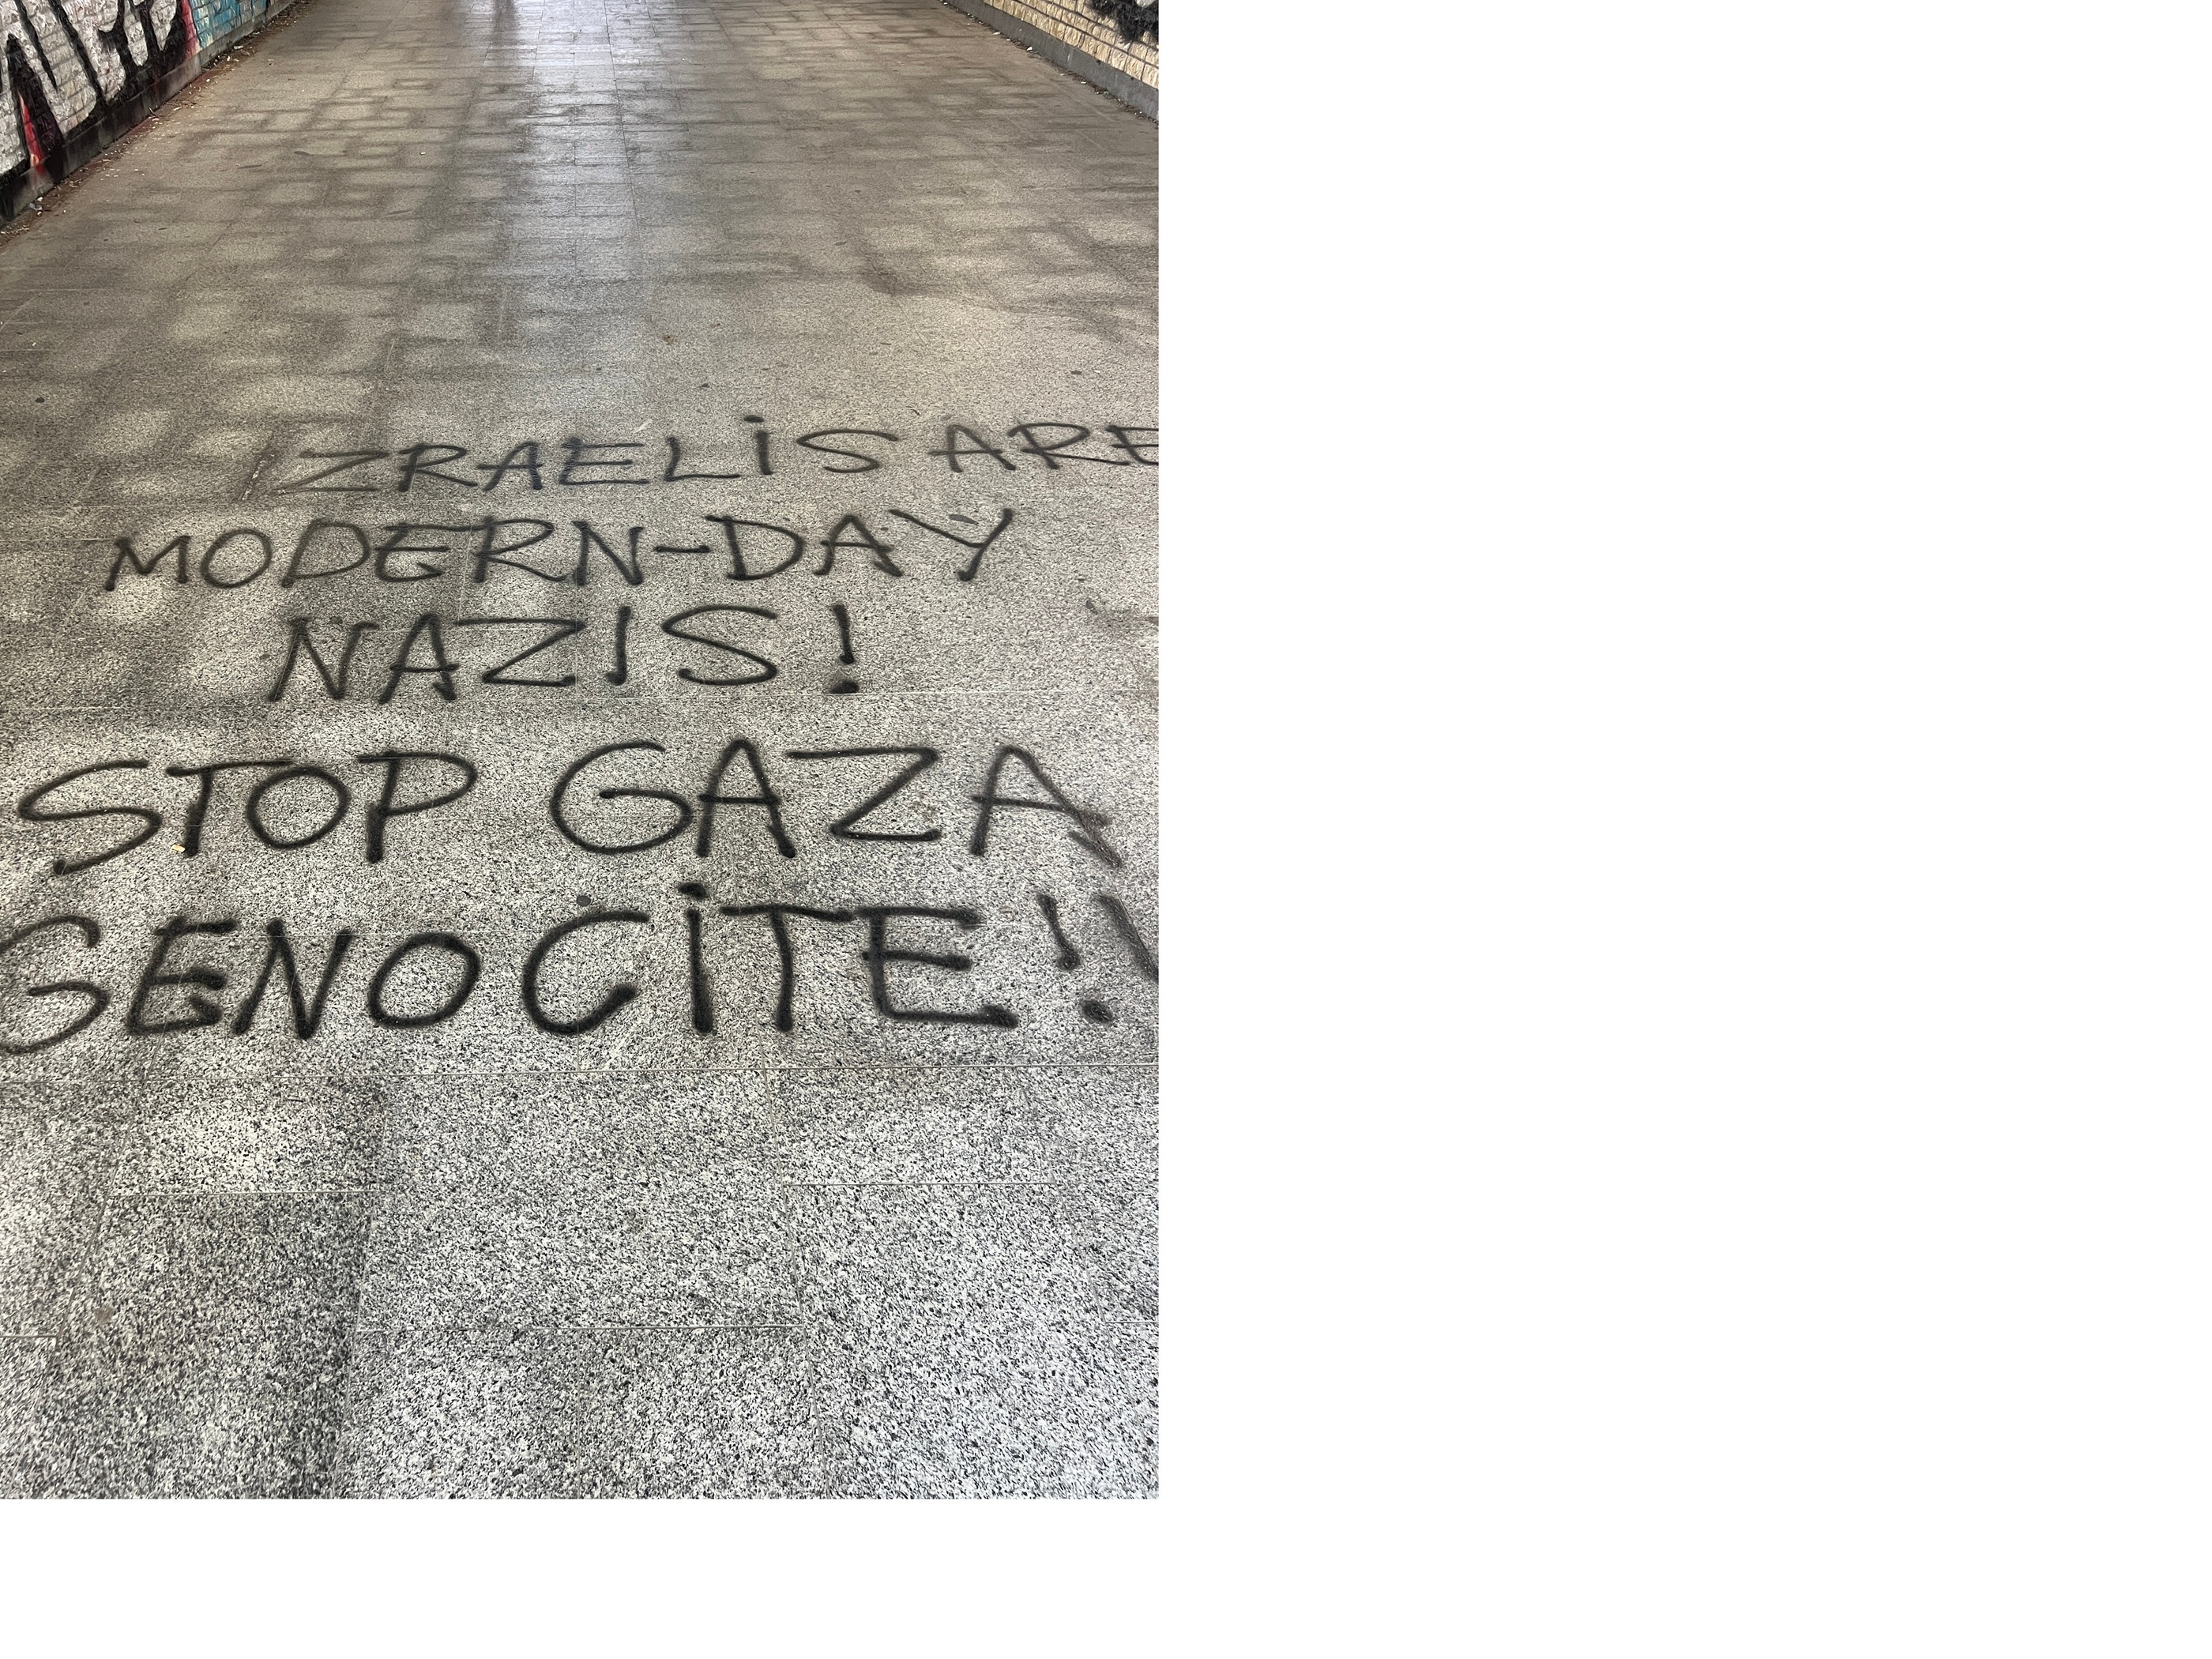 IZRAELIS ARE
MODERN-DAY
NAZIS!
STOP GAZA
GENOCITE!!